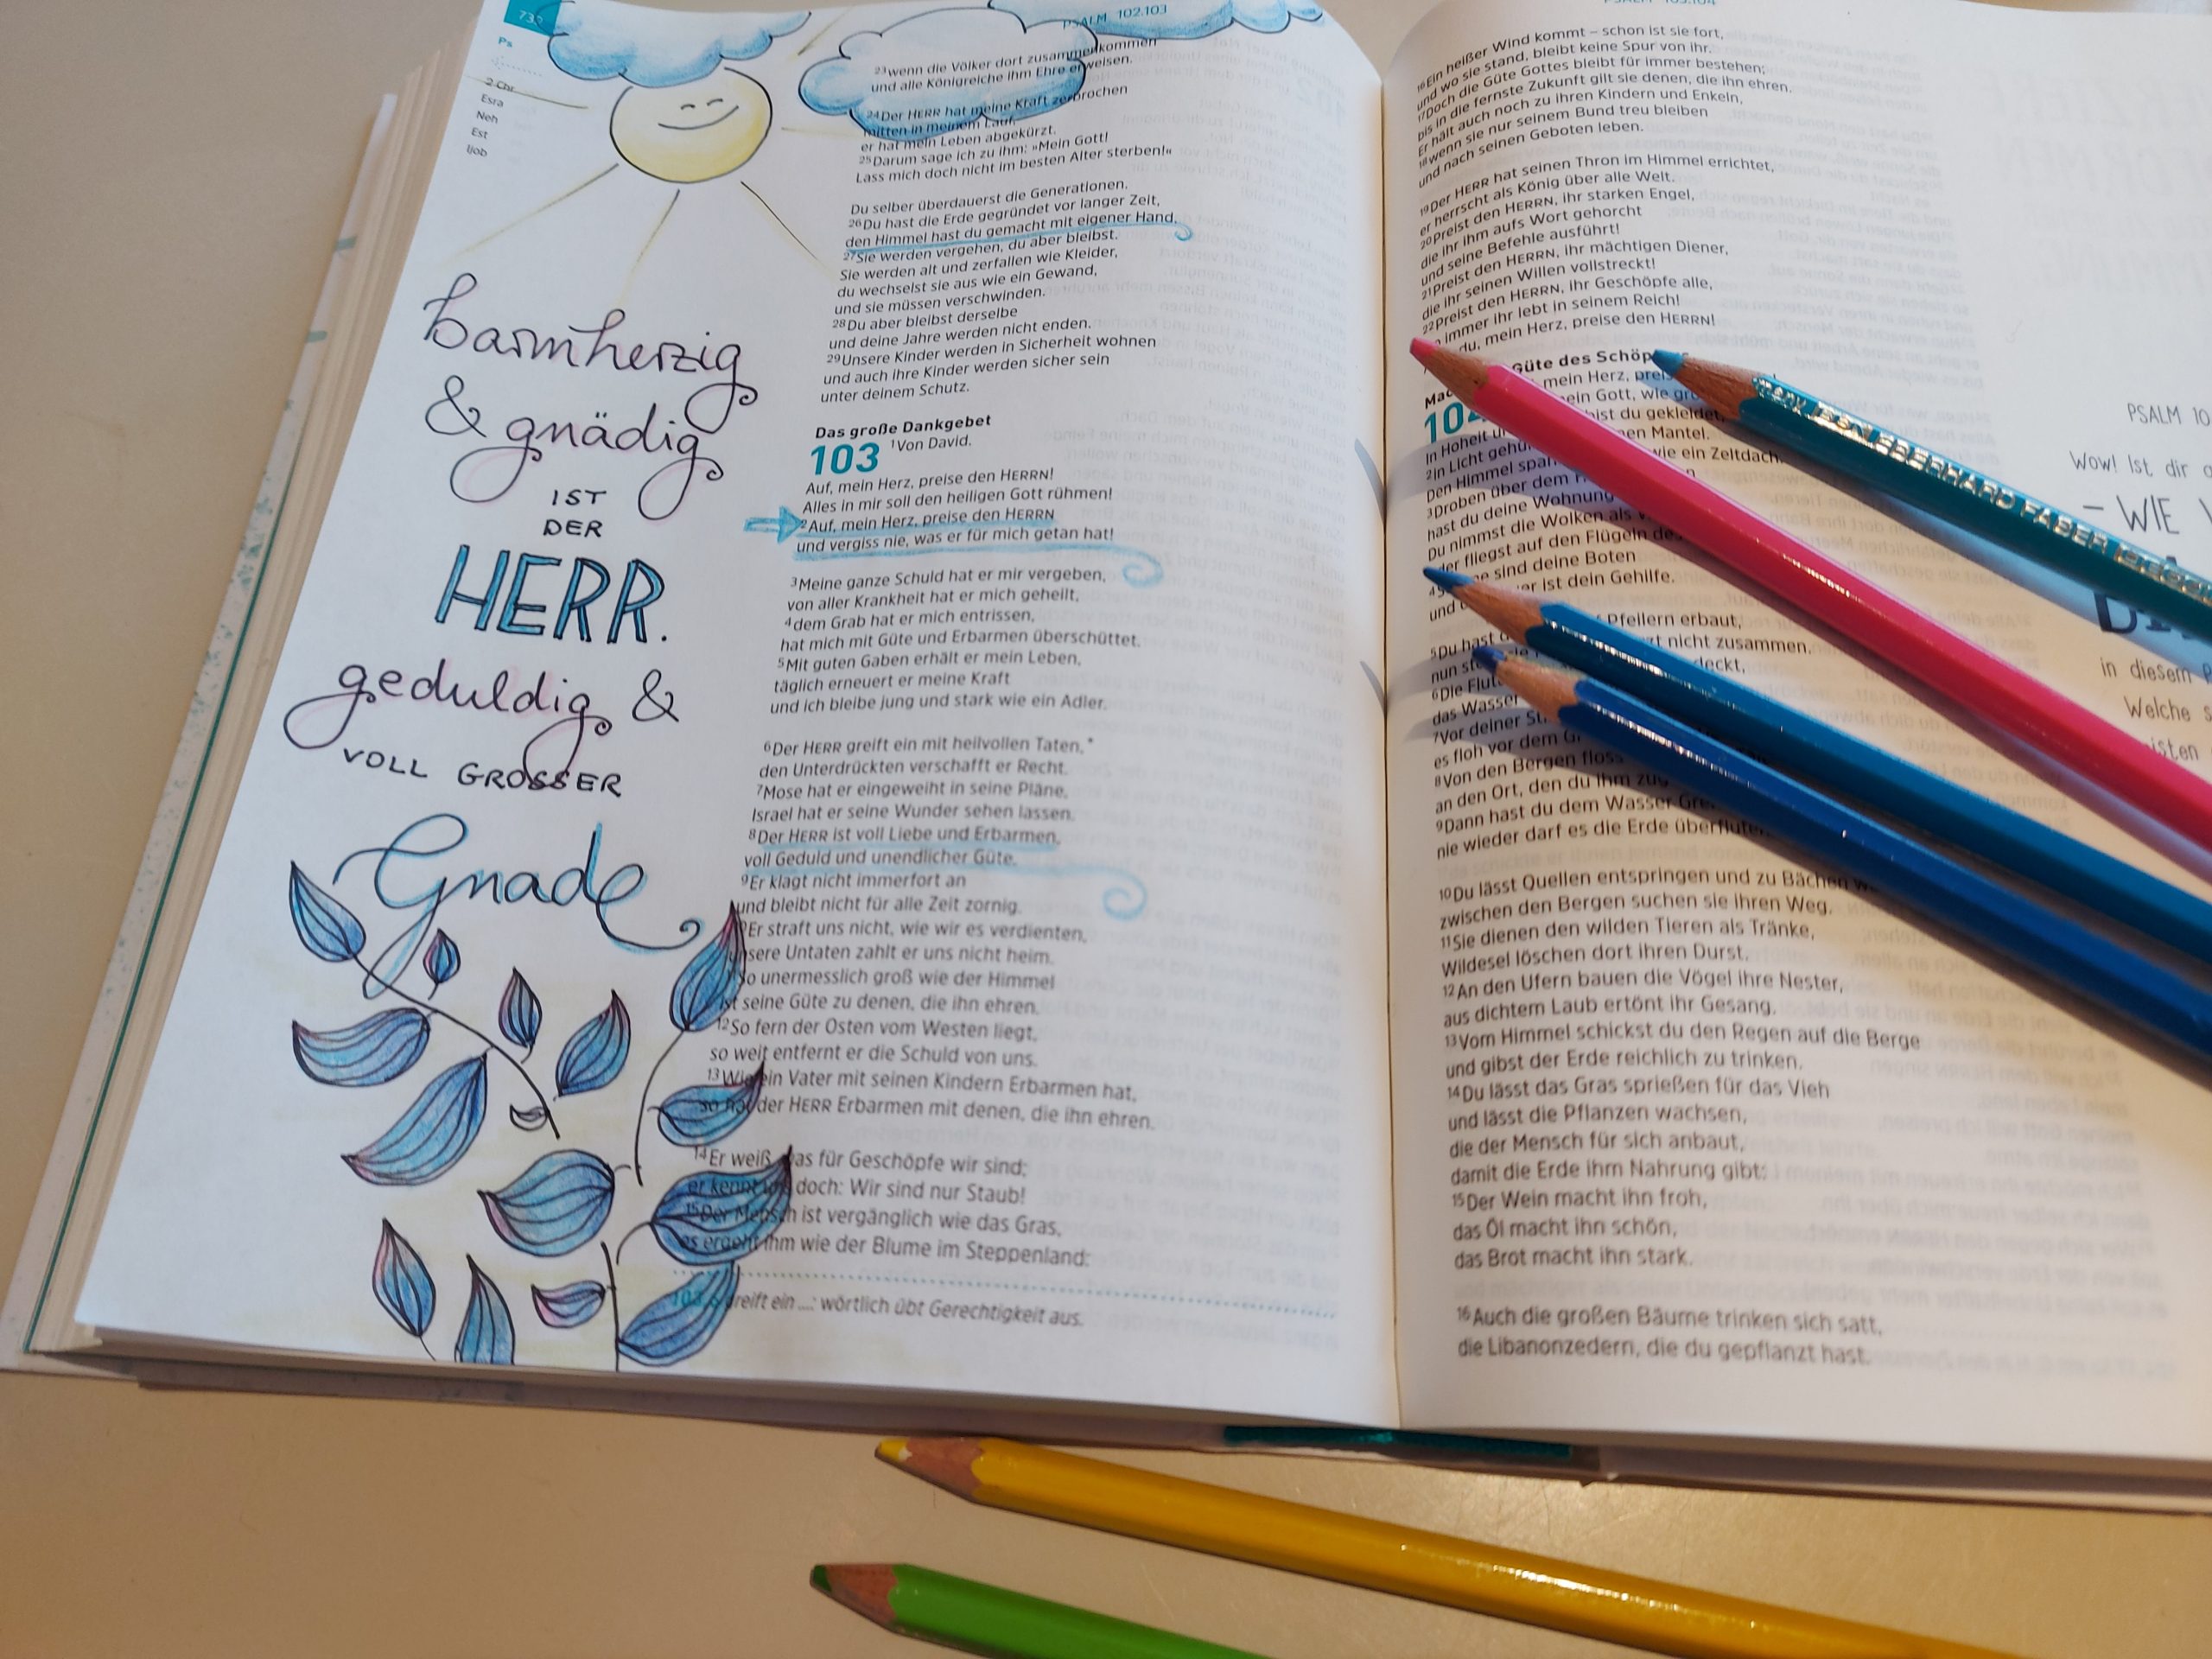 Ps
2 Chr
Esra
Neh
Est
Ijob
barmherzig
& gnädig
IST
DER
HERR.
geduldig &
VOLL GROSSER
Gnade
PSALM 102.103
23wenn die Völker dort zusammenkommen
und alle Königreiche ihm Ehre erweisen.
24Der HERR hat meine Kraft zerbrochen
mitten in meinem Lauf,
er hat mein Leben abgekürzt.
25Darum sage ich zu ihm: »Mein Gott!
Lass mich doch nicht im besten Alter sterben!«
Du selber überdauerst die Generationen.
26Du hast die Erde gegründet vor langer Zeit,
den Himmel hast du gemacht mit eigener Hand.
27Sie werden vergehen, du aber bleibst.
Sie werden alt und zerfallen wie Kleider,
du wechselst sie aus wie ein Gewand,
und sie müssen verschwinden.
28Du aber bleibst derselbe
und deine Jahre werden nicht enden.
29Unsere Kinder werden in Sicherheit wohnen
und auch ihre Kinder werden sicher sein
unter deinem Schutz.
Das große Dankgebet
103 1Von David.
Auf, mein Herz, preise den HERRN!
Alles in mir soll den heiligen Gott rühmen!
2Auf, mein Herz, preise den HERRN
und vergiss nie, was er für mich getan hat!
3Meine ganze Schuld hat er mir vergeben,
von aller Krankheit hat er mich geheilt,
4dem Grab hat er mich entrissen,
hat mich mit Güte und Erbarmen überschüttet.
5Mit guten Gaben erhält er mein Leben,
täglich erneuert er meine Kraft
und ich bleibe jung und stark wie ein Adler.
6Der HERR greift ein mit heilvollen Taten,*
den Unterdrückten verschafft er Recht.
7Mose hat er eingeweiht in seine Pläne,
Israel hat er seine Wunder sehen lassen.
8Der HERR ist voll Liebe und Erbarmen,
voll Geduld und unendlicher Güte.
9Er klagt nicht immerfort an
und bleibt nicht für alle Zeit zornig.
Er straft uns nicht, wie wir es verdienten,
unsere Untaten zahlt er uns nicht heim.
so unermesslich groß wie der Himmel
ist seine Güte zu denen, die ihn ehren.
12So fern der Osten vom Westen liegt,
so weit entfernt er die Schuld von uns.
13Wie ein Vater mit seinen Kindern Erbarmen hat,
so hat der HERR Erbarmen mit denen, die ihn ehren.
14Er weiß, was für Geschöpfe wir sind;
er kennt uns doch: Wir sind nur Staub!
15Der Mensch ist vergänglich wie das Gras,
es ergeht ihm wie der Blume im Steppenland:
103,6 greift ein ...: wörtlich übt Gerechtigkeit aus.
16Ein heißer Wind kommt – schon ist sie fort,
und wo sie stand, bleibt keine Spur von ihr.
17Doch die Güte Gottes bleibt für immer bestehen;
bis in die fernste Zukunft gilt sie denen, die ihn ehren.
Er hält auch noch zu ihren Kindern und Enkeln,
18wenn sie nur seinem Bund treu bleiben
und nach seinen Geboten leben.
19Der HERR hat seinen Thron im Himmel errichtet,
er herrscht als König über alle Welt.
20Preist den HERRN, ihr starken Engel,
die ihr ihm aufs Wort gehorcht
und seine Befehle ausführt!
21Preist den HERRN, ihr mächtigen Diener,
die ihr seinen Willen vollstreckt!
22Preist den HERRN, ihr Geschöpfe alle,
immer ihr lebt in seinem Reich!
du, mein Herz, preise den HERRN!
Güte des Schöp
104 mein Herz, preis
ein Gott, wie gro
bist du gekleidet,
In Hoheit u en Mantel.
2in Licht gehü wie ein Zeltdach.
Den Himmel span
3Droben über dem
hast du deine Wohnung
Du nimmst die Wolken als
der fliegst auf den Flügeln de
e sind deine Boten
und er ist dein Gehilfe.
5Du hast Pfeilern erbaut,
nun st nicht zusammen.
6Die Flut deckt,
das Wasser
7Vor deiner St
es floh vor dem
8Von den Bergen floss
an den Ort, den du ihm zug
9Dann hast du dem Wasser Gre
nie wieder darf es die Erde überfluten.
10Du lässt Quellen entspringen und zu Bächen
zwischen den Bergen suchen sie ihren Weg.
11Sie dienen den wilden Tieren als Tränke,
Wildesel löschen dort ihren Durst.
12An den Ufern bauen die Vögel ihre Nester,
aus dichtem Laub ertönt ihr Gesang.
13Vom Himmel schickst du den Regen auf die Berge
und gibst der Erde reichlich zu trinken.
14Du lässt das Gras sprießen für das Vieh
und lässt die Pflanzen wachsen,
die der Mensch für sich anbaut,
damit die Erde ihm Nahrung gibt:
15Der Wein macht ihn froh,
das Öl macht ihn schön,
das Brot macht ihn stark.
16Auch die großen Bäume trinken sich satt,
die Libanonzedern, die du gepflanzt hast.
PSALM 10
WOW! Ist dir
– WIE
in diesem
Welche
EBERHARD FABER